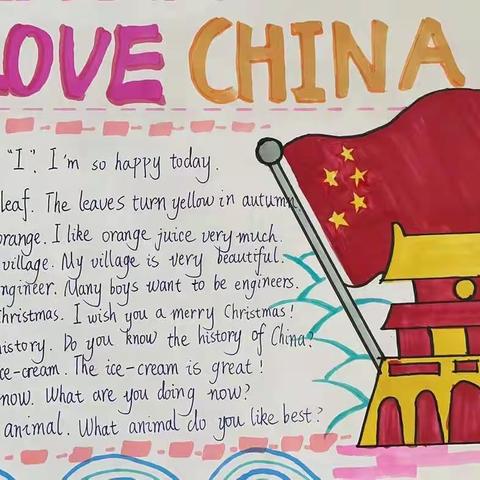 LOVE CHINA
"I". I'm so happy today.
leaf. The leaves turn yellow in autumn
orange. I like orange juice very much.
village. My village is very beautiful.
ngineer. Many boys want to be engineers.
hristmas. I wish you a merry Christmas!
history. Do you know the history of China?
ce-cream. The ice-cream is great!
now. What are you doing now?
animal. What animal do you like best?